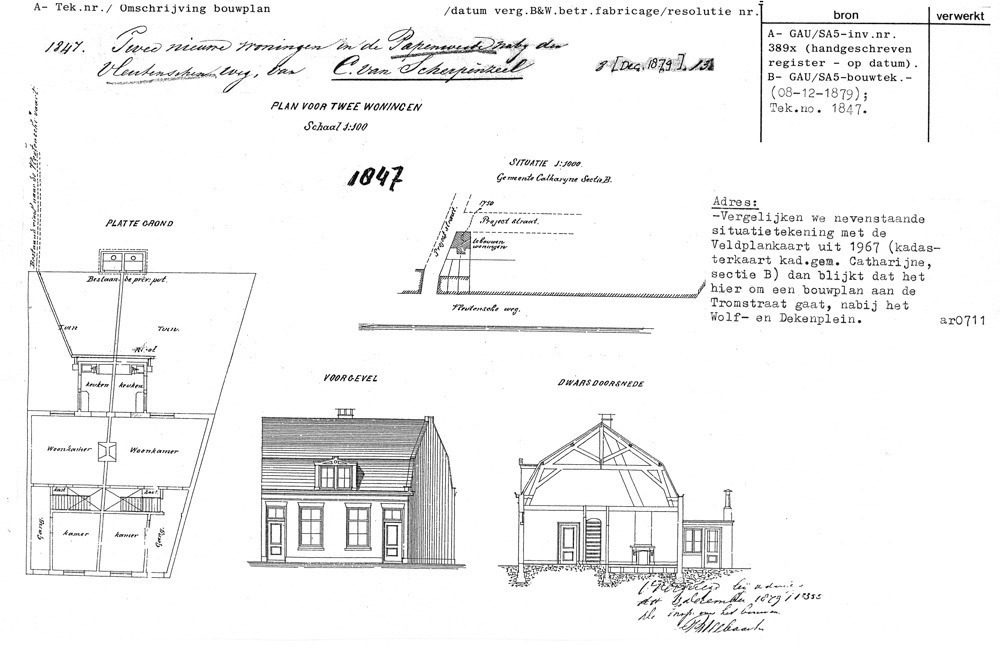 A- Tek.nr./ Omschrijving bouwplan
/datum verg.B&W.betr.fabricage/resolutie nr.
bron
verwerkt
1847. Twee nieuwe woningen in de Papenweide nabij den
Vleutenschen weg, van C. van Scherpenzeel
8 [Dec. 1879]. 13
A- GAU/SA5-inv.nr.
389x (handgeschreven
register - op datum).
B- GAU/SA5-bouwtek.-
(08-12-1879);
Tek.no. 1847.
PLAN VOOR TWEE WONINGEN
Schaal 1:100
1847
SITUATIE 1:1000.
Gemeente Catharyne Sectie B.
1750
Project straat.
Project straat.
te bouwen
woningen
Vleutensche weg.
Adres:
-Vergelijken we nevenstaande
situatietekening met de
Veldplankaart uit 1967 (kadas-
terkaart kad.gem. Catharijne,
sectie B) dan blijkt dat het
hier om een bouwplan aan de
Tromstraat gaat, nabij het
Wolf- en Dekenplein.
ar0711
PLATTE GROND
Bestaande priv: put.
Tuin
Tuin.
Riool
keuken
keuken
Woonkamer
Woonkamer
kast
kast
Gang.
kamer
kamer
Gang.
VOORGEVEL
DWARSDOORSNEDE
december 1879